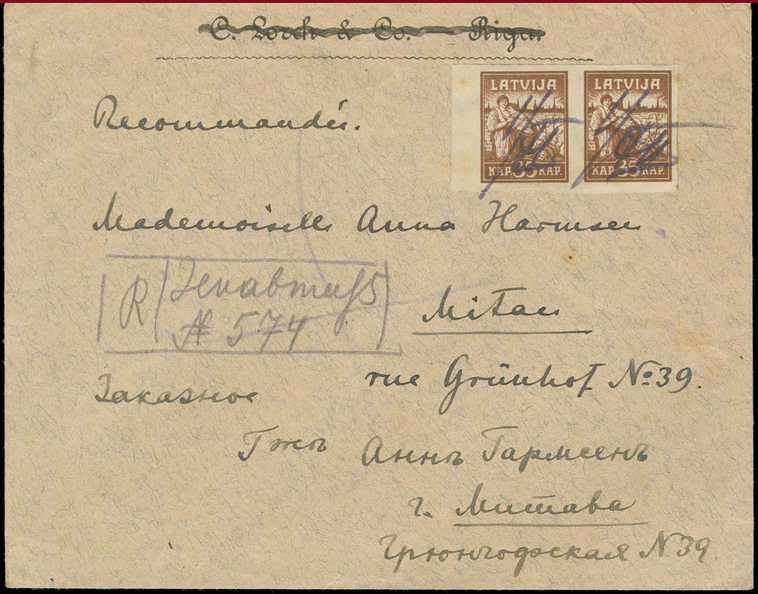 C. Lorch & Co. Riga.
LATVIJA LATVIJA
КАР. 35 КАР. КАР. 35 КАР.
Recommandée.
Mademoiselle Anna Harmsen
R
№ 574
Mitau
rue Grünhof №39.
Заказное
Гжѣ Аннѣ Гармсенъ
г. Митава
Грюнгофская N39.